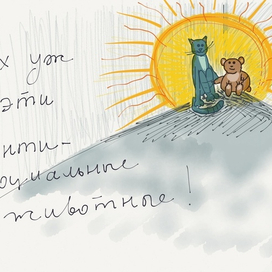 х уж
эти
нти-
оциальные
животные!